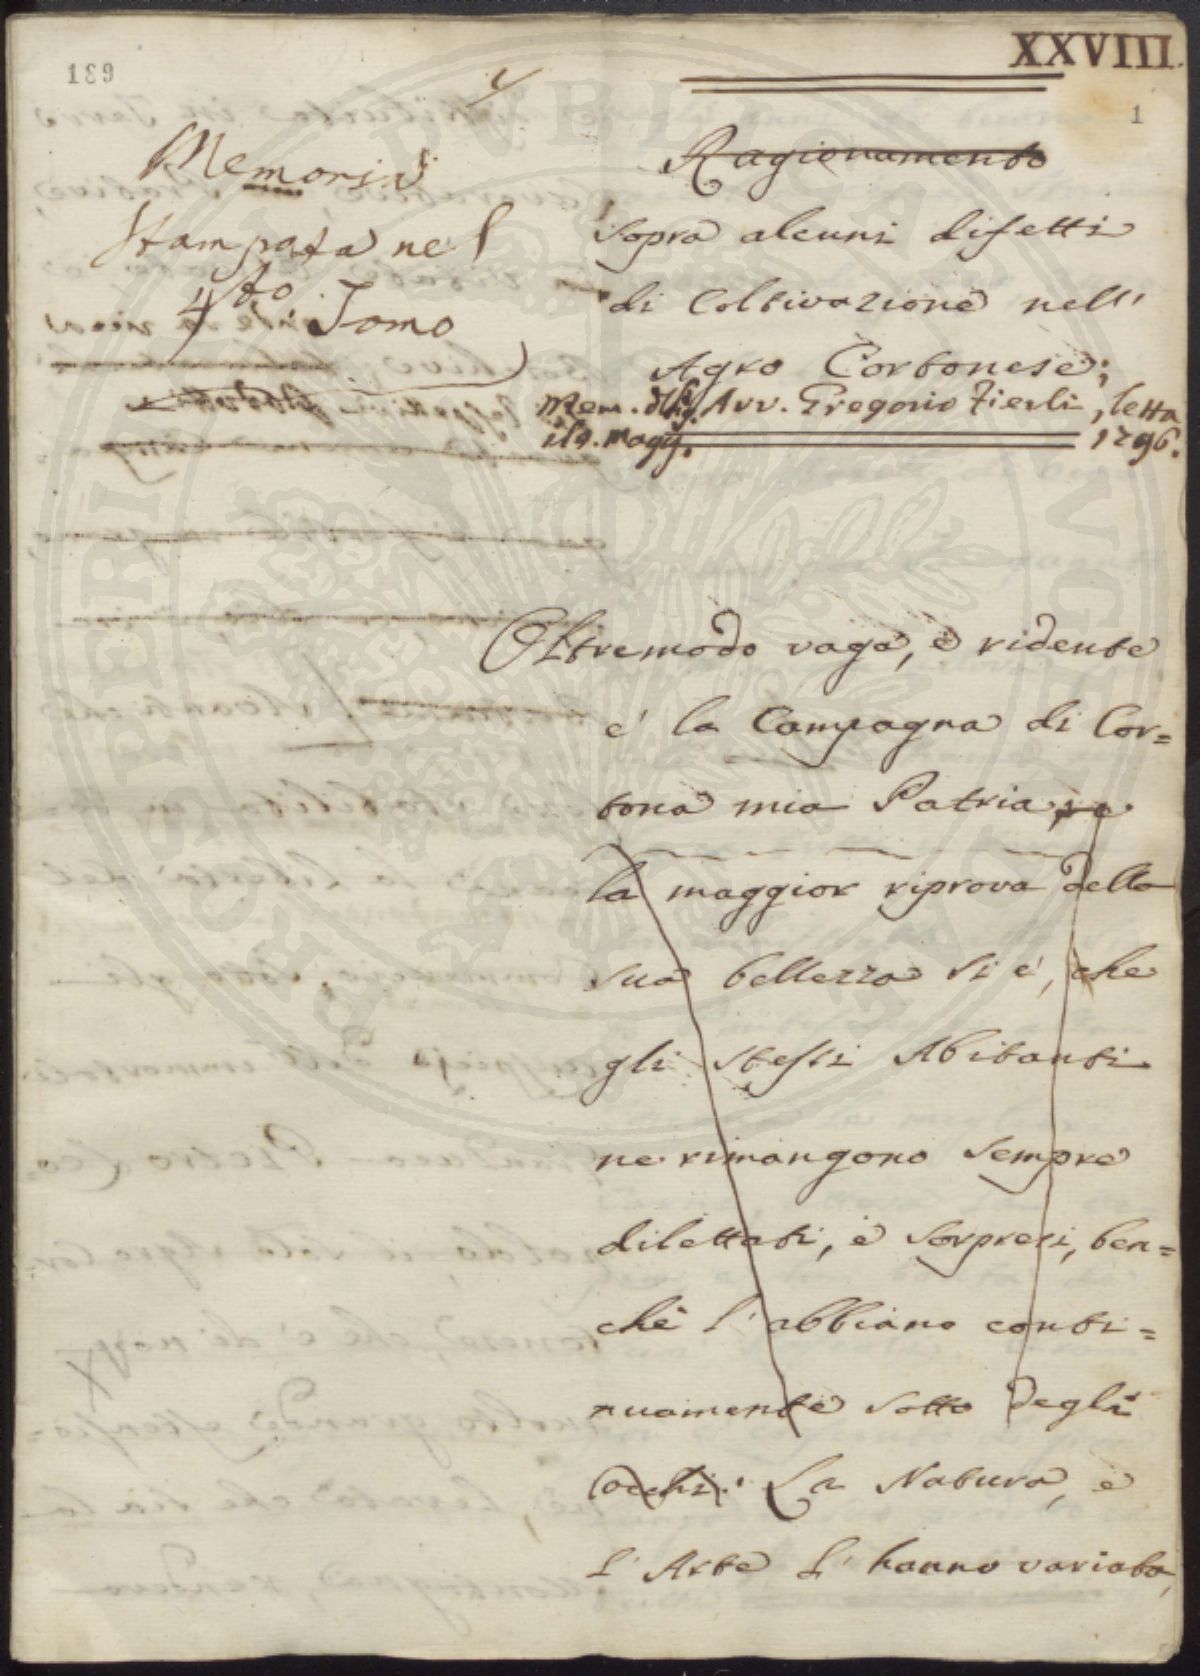 XXVIII.
189
1
Memoria
Stampata nel
4to. Tomo
Ragionamento
sopra alcuni difetti
di Coltivazione nell'
Agro Cortonese;
Mem. del Sig. Avv. Gregorio Fierli, letta
il 4. Magg. 1796.
Oltremodo vaga, e ridente
e' la Campagna di Cor=
tona mia Patria, e
la maggior riprova della
sua bellezza si e', che
gli stessi Abitanti
ne rimangono sempre
dilettati, e sorpresi, ben=
chè l'abbiano conti=
nuamente sotto degli
occhi. La Natura, e
l'Arte l'hanno variata,
PUBLICAE